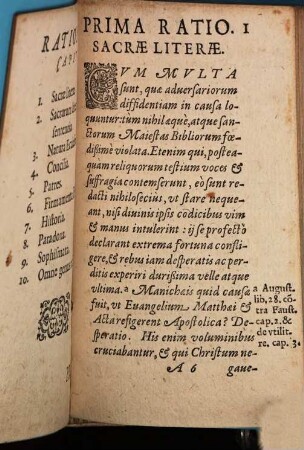 RATIO
1. Sacræ literæ
2. Sacrarum
sententia
3. Natura
4. Concilia
5. Patres.
6. Firmamentū
7. Historia.
8. Paradoxa
9. Sophismata
10. Omne genus
PRIMA RATIO. 1
SACRÆ LITERÆ.
CVM MVLTA
sunt, quæ adversariorum
diffidentiam in causa lo-
quuntur: tum nihil æquè, atque san-
ctorum Maiestas Bibliorum fœ-
dissimè violata. Etenim qui, postea-
quam reliquorum testium voces &
suffragia contemserunt, eò sunt re-
dacti nihilosecius, vt stare neque-
ant, nisi divinis ipsis codicibus vim
& manus intulerint: ij se profectò
declarant extrema fortuna confli-
gere, & rebus iam desperatis ac per-
ditis experiri durissima velle atque
vltima. a Manichæis quid causæ
fuit, vt Euangelium Matthæi &
Acta refigerent Apostolica? De-
speratio. His enim voluminibus
cruciabantur, & qui Christum ne-
A 6 gaue-
a August.
lib, 28. cō-
tra Faust.
cap. 2. &
de vtilit.
re. cap. 3.